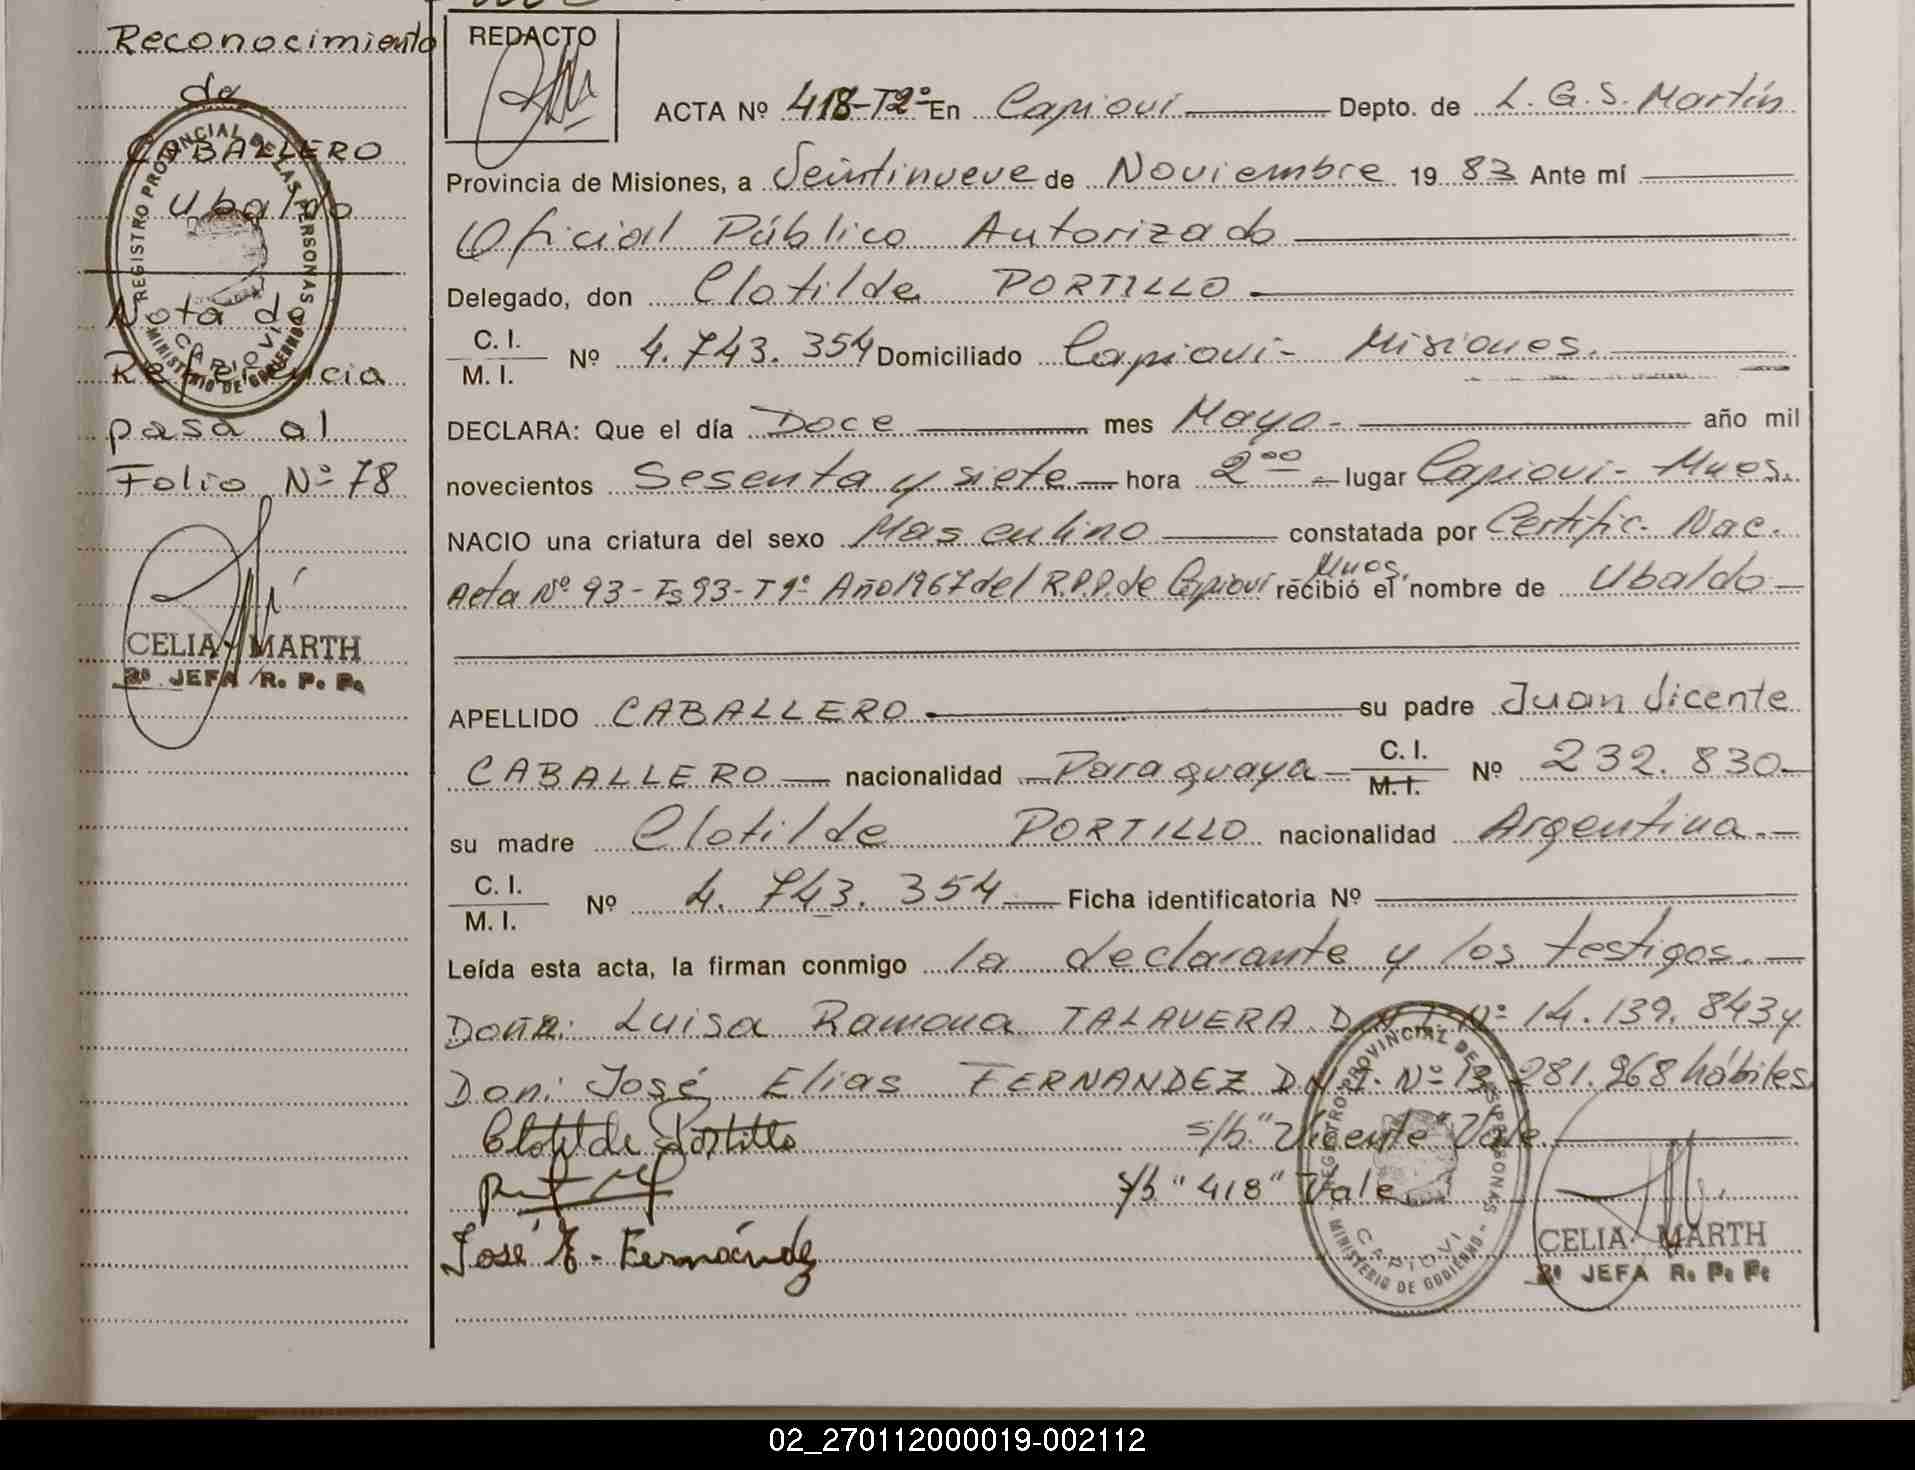 Reconocimiento
de
CABALLERO
Ubaldo
Nota de
Referencia
pasa al
Folio Nº 78
CELIA MARTH
2º JEFA R. P. P.
REGISTRO PROVINCIAL DE LAS PERSONAS
CAPIOVI
MINISTERIO DE GOBIERNO
REDACTO
ACTA Nº 418-T2º En Capioví Depto. de L. G. S. Martín
Provincia de Misiones, a Veintinueve de Noviembre 19 83 Ante mí
Oficial Público Autorizado
Delegado, don Clotilde PORTILLO
C. I.
M. I. Nº 4.743.354 Domiciliado Capioví - Misiones.
DECLARA: Que el día Doce mes Mayo - año mil
novecientos Sesenta y siete hora 2 00 lugar Capioví - Mnes.
NACIO una criatura del sexo Masculino constatada por Certific. Nac.
Acta Nº 93 - Fs 93 - T 1º Año 1967 del R.P.P. de Capioví Mnes. recibió el nombre de Ubaldo
APELLIDO CABALLERO su padre Juan Vicente
CABALLERO nacionalidad Paraguaya C. I. M. I. Nº 232.830
su madre Clotilde PORTILLO nacionalidad Argentina.
C. I.
M. I. Nº 4.743.354 Ficha identificatoria Nº
Leída esta acta, la firman conmigo la declarante y los testigos.
Doña: Luisa Ramona TALAVERA D.N.I. Nº 14.139.843 y
Don: José Elias FERNANDEZ D.N.I. Nº 281.968 hábiles
Clotilde Portillo s/b "Vicente" Vale
s/b "418" Vale
José E - Fernández
REGISTRO PROVINCIAL DE LAS PERSONAS
CAPIOVI
MINISTERIO DE GOBIERNO
CELIA MARTH
2º JEFA R. P. P.
02_270112000019-002112